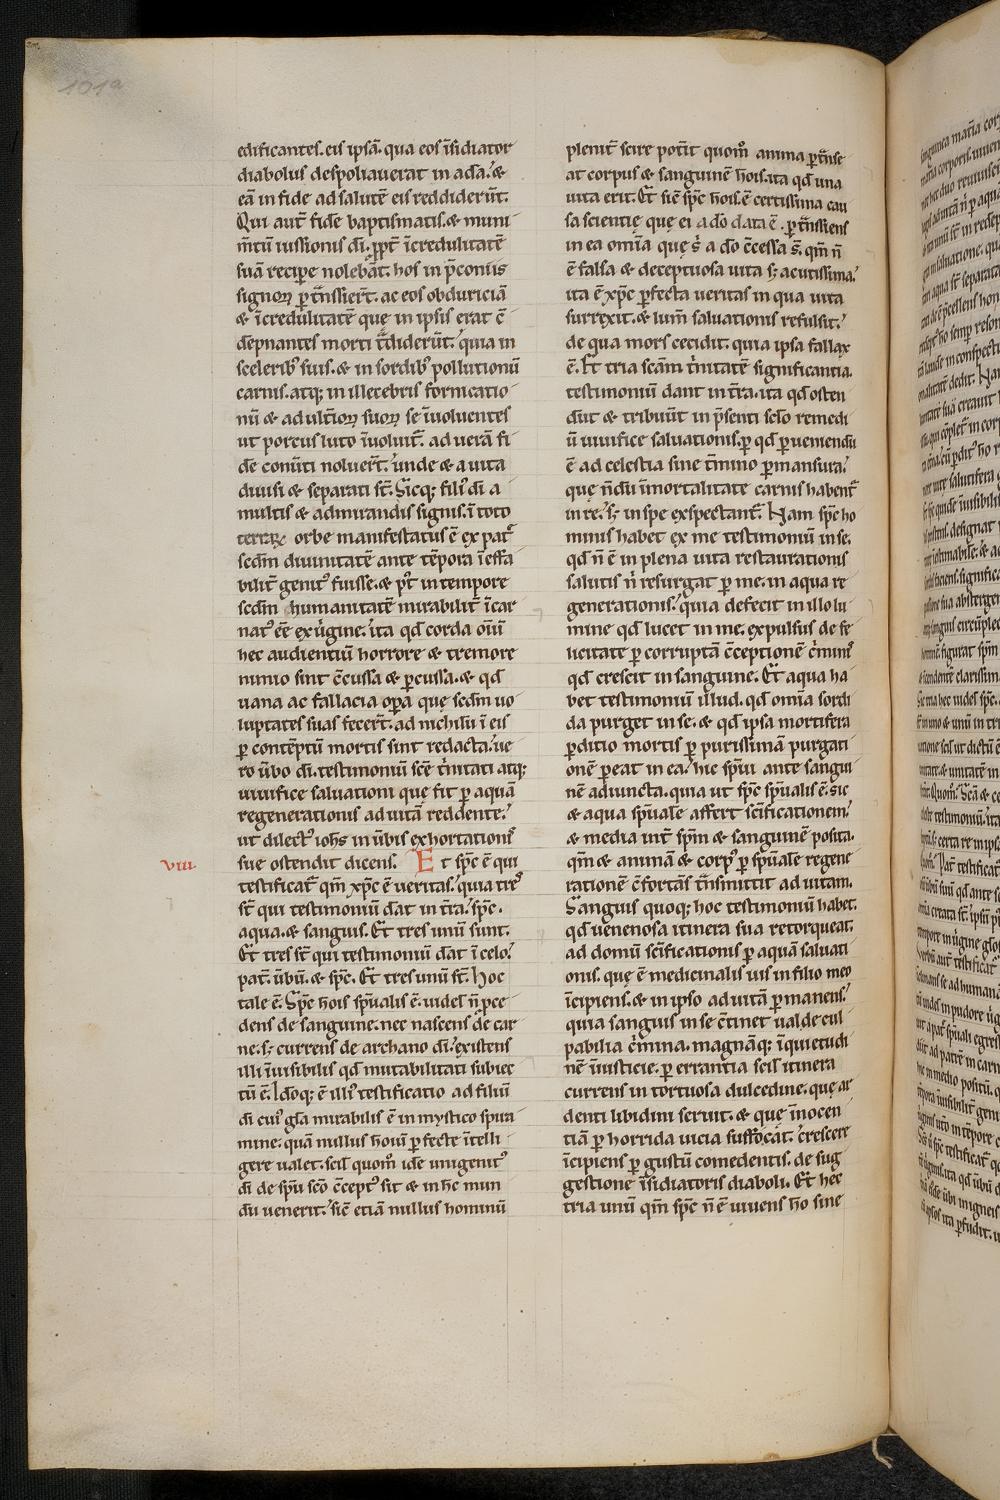 101a
edificantes. eis ipsā. qua eos īsidiator
diabolus despoliauerat in adā. &
eā in fide ad salutē eis reddiderūt.
Qui aut̄ fidē baptismatis. & muni
m̄tū iussionis dī. ꝓpt̄ īcredulitatē
suā recipe nolebāt. hos in p̄coniis
signoꝝ ꝑt̄nssier̄t. ac eos obduriciā
& īcredulitatē quę in ipsis erat c̄
dēpnantes morti t̄diderūt. quia in
scelerib᷒ suis. & in sordib᷒ pollutionū
carnis. atq; in illecebris fornicatio
nū & adult̄ioꝝ suoꝝ se īuoluentes
ut porcus luto īuoluit̄. ad uerā fi
dē conūti noluer̄t. unde & a uita
diuisi & separati st̄. Sicq; fili᷒ dī a
multis & admirandis signis. ī toto
terraꝝ orbe manifestatus ē ex pat̄
scdm̄ diuinitatē ante tēpora īeffa
bilit̄ genit᷒ fuisse. & p᷒t in tempore
scdm̄ humanitatē mirabilit̄ īcar
nat᷒ ēē ex ūgine. ita qd̄ corda oīū
hec audientiū horrore & tremore
nimio sint c̄cussa & ꝑcussa. & qd̄
uana ac fallacia oꝑa quę scdm̄ uo
luptates suas fecer̄t. ad nichilū ī eis
ꝑ contēptū mortis sint redacta. ue
ro ūbo dī. testimoniū scē t̄nitati atq;
uiuifice saluationi que fit ꝑ aquā
regenerationis ad uitā reddente.
ut dilect᷒ iohs̄ in ūbis exhortationis
sue ostendit dicens. Et sp̄c ē qui
viii.
testificat̄ qm̄ xp̄c ē ueritas. quia tres
st̄ qui testimoniū dāt in t̄ra. sp̄c.
aqua. & sanguis. Et tres unū sunt.
Et tres st̄ qui testimoniū dāt ī celo.
pat̄. ūbū. & sp̄c. Et tres unū st̄. Hoc
tale ē. Sp̄c hoīs sp̄ualis ē. uidel̄ n̄ ꝓce
dens de sanguine. nec nascens de car
ne. s; currens de archano dī. existens
illi īuisibilis qd̄ mutabilitati subiec
tū ē. Idōq; ē illi᷒ testificatio ad filiū
dī cui᷒ gl̄a mirabilis ē in mystico spira
mine. quā nullus hoīū ꝑfecte ītelli
gere ualet. scil̄ quom̄ idē unigenit᷒
dī de sp̄u sc̄o c̄cept᷒ sit & in hc̄ mun
dū uenerit. sic̄ etiā nullus hominū
plenit̄ scire pot̄it quom̄ anima ꝑt̄nse
at corpus & sanguinē hoīs. ita qd̄ una
uita erit. Et sic̄ sp̄c hoīs. ē certissima cau
sa scientię que ei a dō data ē. ꝑt̄nssiens
in ea omīa quę s̄ a dō c̄cessa s̄. qm̄ n̄
ē falsa & deceptuosa uita s; acutissima.
ita ē xp̄c ꝑfecta ueritas in qua uita
surrexit. & lum̄ saluationis refulsit.
de qua mors cecidit. quia ipsa fallax
ē. Et tria scām t̄nitatē significantia.
testimoniū dant in t̄ra. ita qd̄ osten
dūt & tribuūt in p̄senti sc̄lo remedi
ū uiuifice saluationis. ꝑ qd̄ ꝑueniendū
ē ad celestia sine t̄mino ꝑmansura.
que n̄dū īmortalitate carnis habent̄
in re. s; in spe exspectant̄. Nam sp̄c ho
minis habet ex me testimoniū in se.
qd̄ n̄ ē in plena uita restaurationis
salutis n̄ resurgat ꝑ me. in aqua re
generationis. quia defecit in illo lu
mine qd̄ lucet in me. expulsus de fe
licitate ꝑ corruptā c̄ceptionē c̄minis
qd̄ crescit in sanguine. Et aqua ha
bet testimoniū illud. qd̄ omīa sordi
da purget in se. & qd̄ ipsa mortifera
ꝑditio mortis ꝑ purissimā purgati
onē ꝑeat in ea. hic sp̄ui ante sangui
nē adiuncta. quia ut sp̄c sp̄ualis ē. sic
& aqua sp̄ualē affert sc̄ificationem.
& media int̄ sp̄m & sanguinē posita.
qm̄ & animā & corp᷒ ꝑ sp̄ualē regene
rationē c̄fortās t̄nsmittit ad uitam.
Sanguis quoq; hoc testimoniū habet.
qd̄ uenenosa itinera sua retorqueat.
ad domū sc̄ificationis ꝑ aquā saluati
onis. quę ē medicinalis uis in filio meo
īcipiens. & in ipso ad uitā ꝑmanens.
quia sanguis in se c̄tinet ualde cul
pabilia c̄mina. magnāq; īquietudi
nē iusticie. ꝑ errantia scil̄ itinera
currens in tortuosa dulcedine. que ar
denti libidini seruit. & que īnocen
tiā ꝑ horrida uicia suffocat. crescere
īcipiens ꝑ gustū comedentis. de sug
gestione īsidiatoris diaboli. Et hec
tria unū qm̄ sp̄c n̄ ē uiuens hō sine